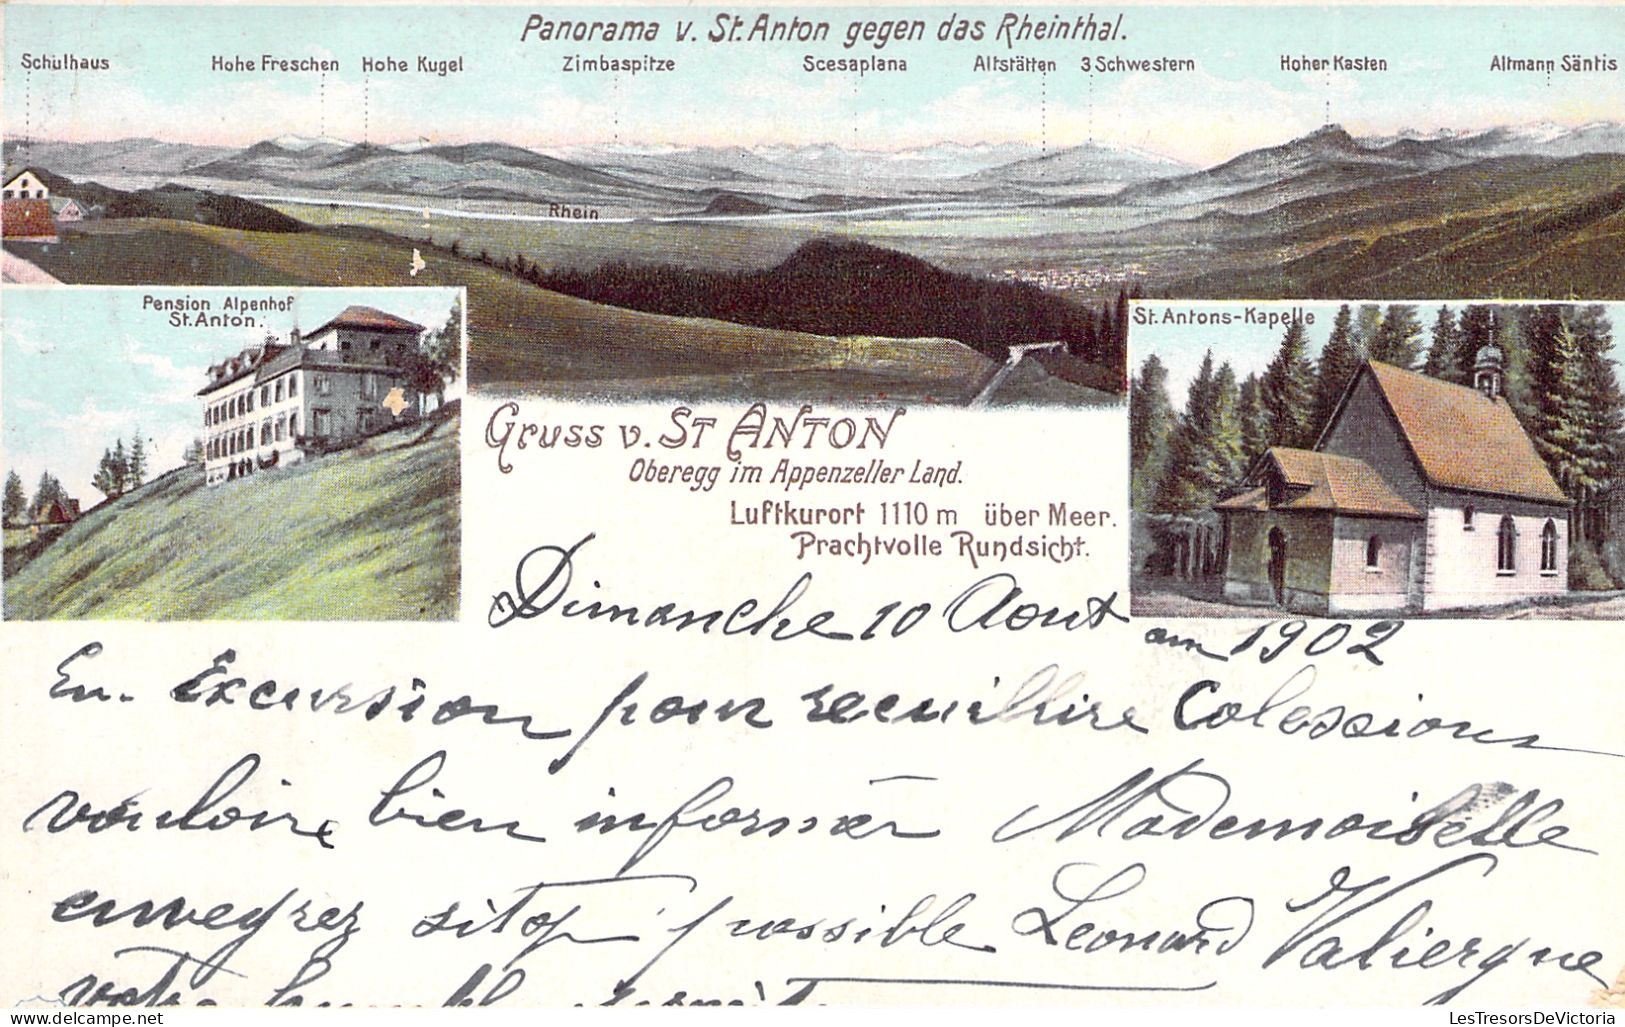 Panorama v. St. Anton gegen das Rheinthal.
Schulhaus Hohe Freschen Hohe Kugel Zimbaspitze Scesaplana Altstätten 3 Schwestern Hoher Kasten Altmann Säntis
Rhein
Pension Alpenhof
St. Anton.
St. Antons-Kapelle
Gruss v. ST ANTON
Oberegg im Appenzeller Land.
Luftkurort 1110 m über Meer.
Prachtvolle Rundsicht.
Dimanche 10 Aout am 1902
En Excursion pour recuillire Colessions
vouloire bien informer Mademoiselle
sitop possible Leonard Valiergue
votre
delcampe.net
LesTresorsDeVictoria